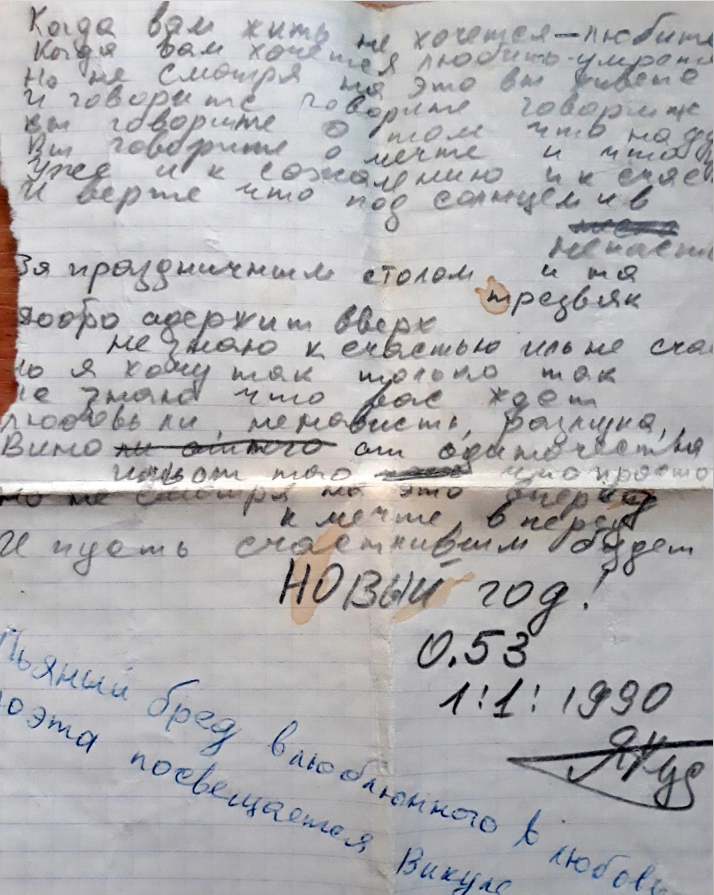 Когда вам жить не хочется-любите
Когда вам хочется любить-умрите
Но не смотря на это вы живете
И говорите говорите говорите
Вы говорите о том что на
Вы говорите о мечте и что
Уже и к сожалению и к счас
И верте что под солнцем и в
ненаст
За праздничным столом и та
трезвяк
добро адержит вверх
не знаю к счастью иль не сча
но я хочу так только так
не знаю что вас ждет
любовь ли, ненависть, разлука,
Вино от одиночества
иль от того что просто
но не смотря на это вперед
к мечте, вперед
И пусть счастливым будет
НОВЫЙ год!
0.53
1:1:1990
Пьяный бред влюблюнного в любовь
поэта посвещается Викуле